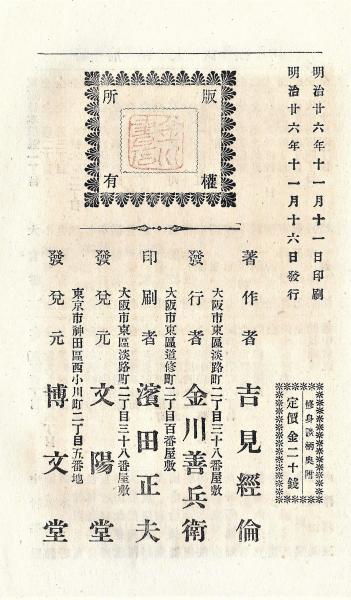 明治廿六年十一月十一日印刷
明治廿六年十一月十六日發行
修身談柄奥附
定價金二十錢
版權所有
著作者 吉見經倫
大阪市東區淡路町二丁目三十八番屋敷
發行者 金川善兵衛
大阪市東區道修町二丁目百番屋敷
印刷者 濱田正夫
大阪市東區淡路町二丁目三十八番屋敷
發兌元 文陽堂
東京市神田區西小川町二丁目五番地
發兌元 博文堂